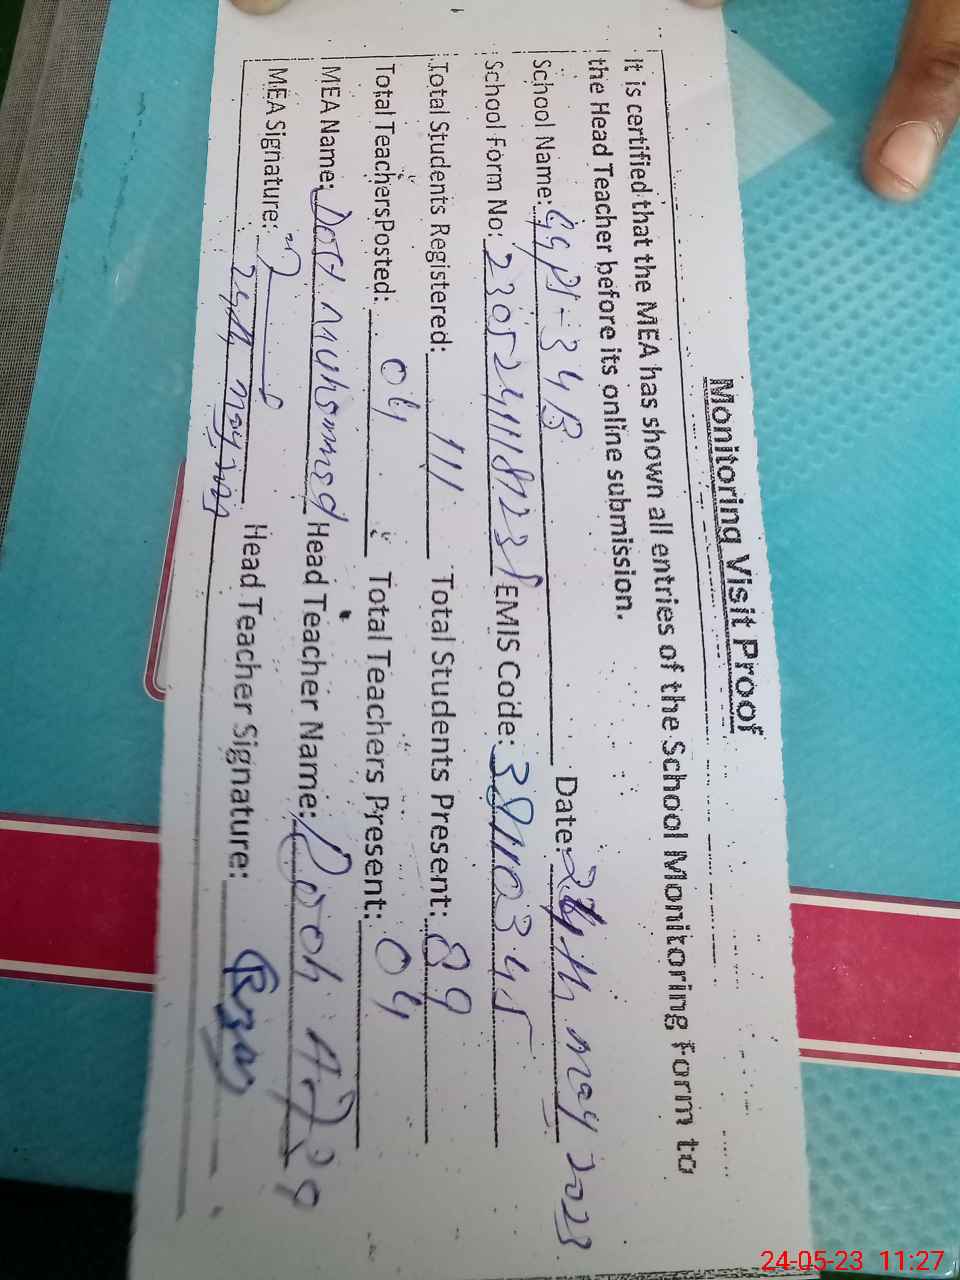 Monitoring Visit Proof
It is certified that the MEA has shown all entries of the School Monitoring Form to
the Head Teacher before its online submission.
School Name: Date: 24th may 2023
School Form No: EMIS Code: 38110345
Total Students Registered: 111 Total Students Present: 89
Total Teachers Posted: 04 Total Teachers Present: 04
MEA Name: Dost muhammad Head Teacher Name:
MEA Signature: Head Teacher Signature:
24th may
24-05-23 11:27